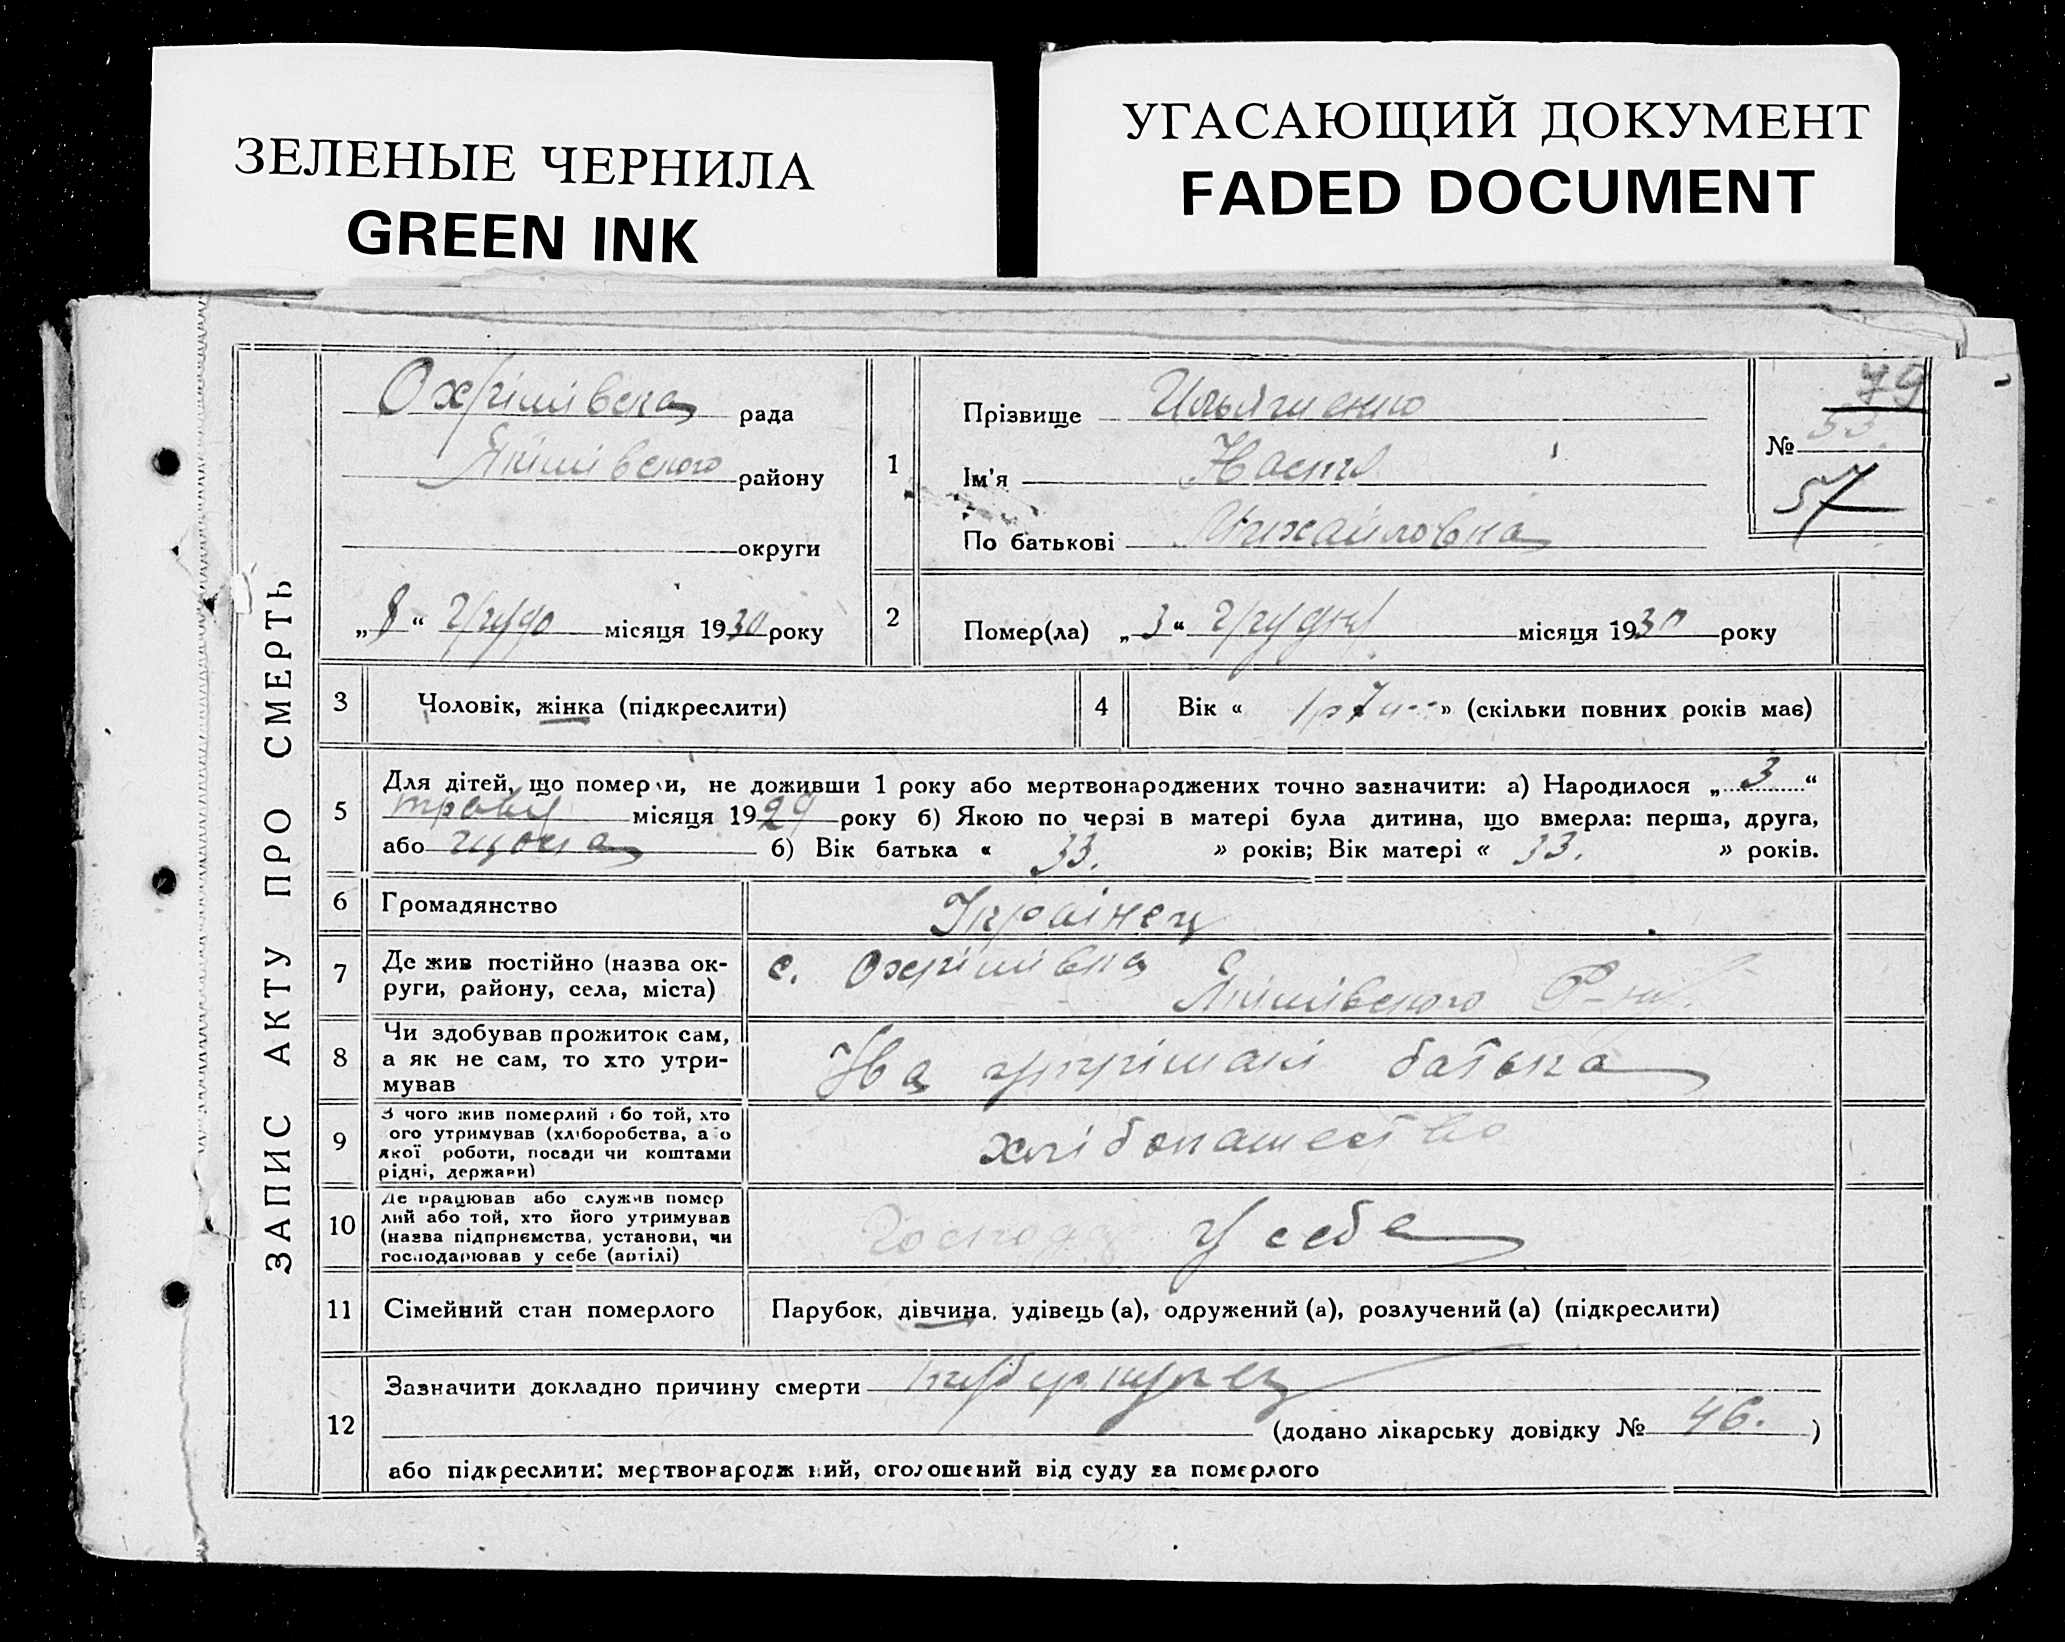 ЗЕЛЕНЫЕ ЧЕРНИЛА
GREEN INK
УГАСАЮЩИЙ ДОКУМЕНТ
FADED DOCUMENT
ЗАПИС АКТУ ПРО СМЕРТЬ
Охрімівска рада
Якімівского району
округи
„8“ грудо місяця 1930 року
1
Прізвище Ильяшенко
Ім'я Настя
По батькові Михайловна
79
№ 53.
57
2
Помер(ла) „3“ грудня місяця 1930 року
3
Чоловік, жінка (підкреслити)
4
Вік « 1 р 7 » (скільки повних років має)
5
Для дітей, що померли, не доживши 1 року або мертвонароджених точно зазначити: а) Народилося „3“
травня місяця 1929 року б) Якою по черзі в матері була дитина, що вмерла: перша, друга,
або б) Вік батька « 33. » років; Вік матері « 33. » років.
6
Громадянство
Українец
7
Де жив постійно (назва ок-
руги, району, села, міста)
с. Охрімівка
Якімівского Р-ну
8
Чи здобував прожиток сам,
а як не сам, то хто утри-
мував
На утрімані батька
9
З чого жив померлий або той, хто
ого утримував (хліборобства, або
якої роботи, посади чи коштами
рідні, держави)
хлібопашество
10
Де працював або служив помер
лий або той, хто його утримував
(назва підприємства, установи, чи
господарював у себе (артілі)
у себе
11
Сімейний стан померлого
Парубок, дівчина, удівець (а), одружений (а), розлучений (а) (підкреслити)
12
Зазначити докладно причину смерти туберкулез
(додано лікарську довідку № 46. )
або підкреслити: мертвонароджений, оголошений від суду за померлого